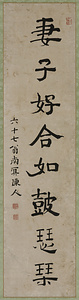 妻子好合如鼓瑟琴
六十七翁南冥陳人